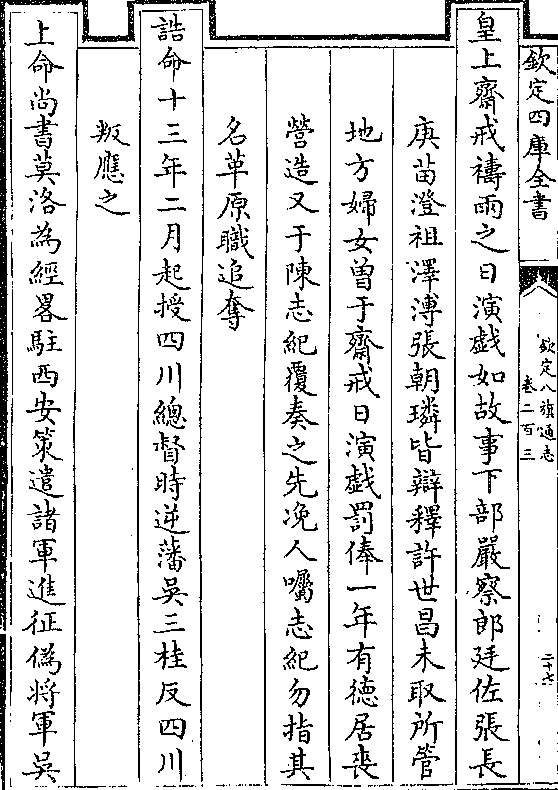 欽定四庫全書
欽定八旗通志
卷二百三
二十七
皇上齋戒禱雨之日演戲如故事下部嚴察郎廷佐張長
庚苗澄祖澤溥張朝璘皆辯釋許世昌未取所管
地方婦女曾于齋戒日演戲罰俸一年有德居喪
營造又于陳志紀覆奏之先浼人囑志紀勿指其
名革原職追奪
誥命十三年二月起授四川總督時逆藩吳三桂反四川
叛應之
上命尚書莫洛為經畧駐西安策遣諸軍進征偽將軍吳